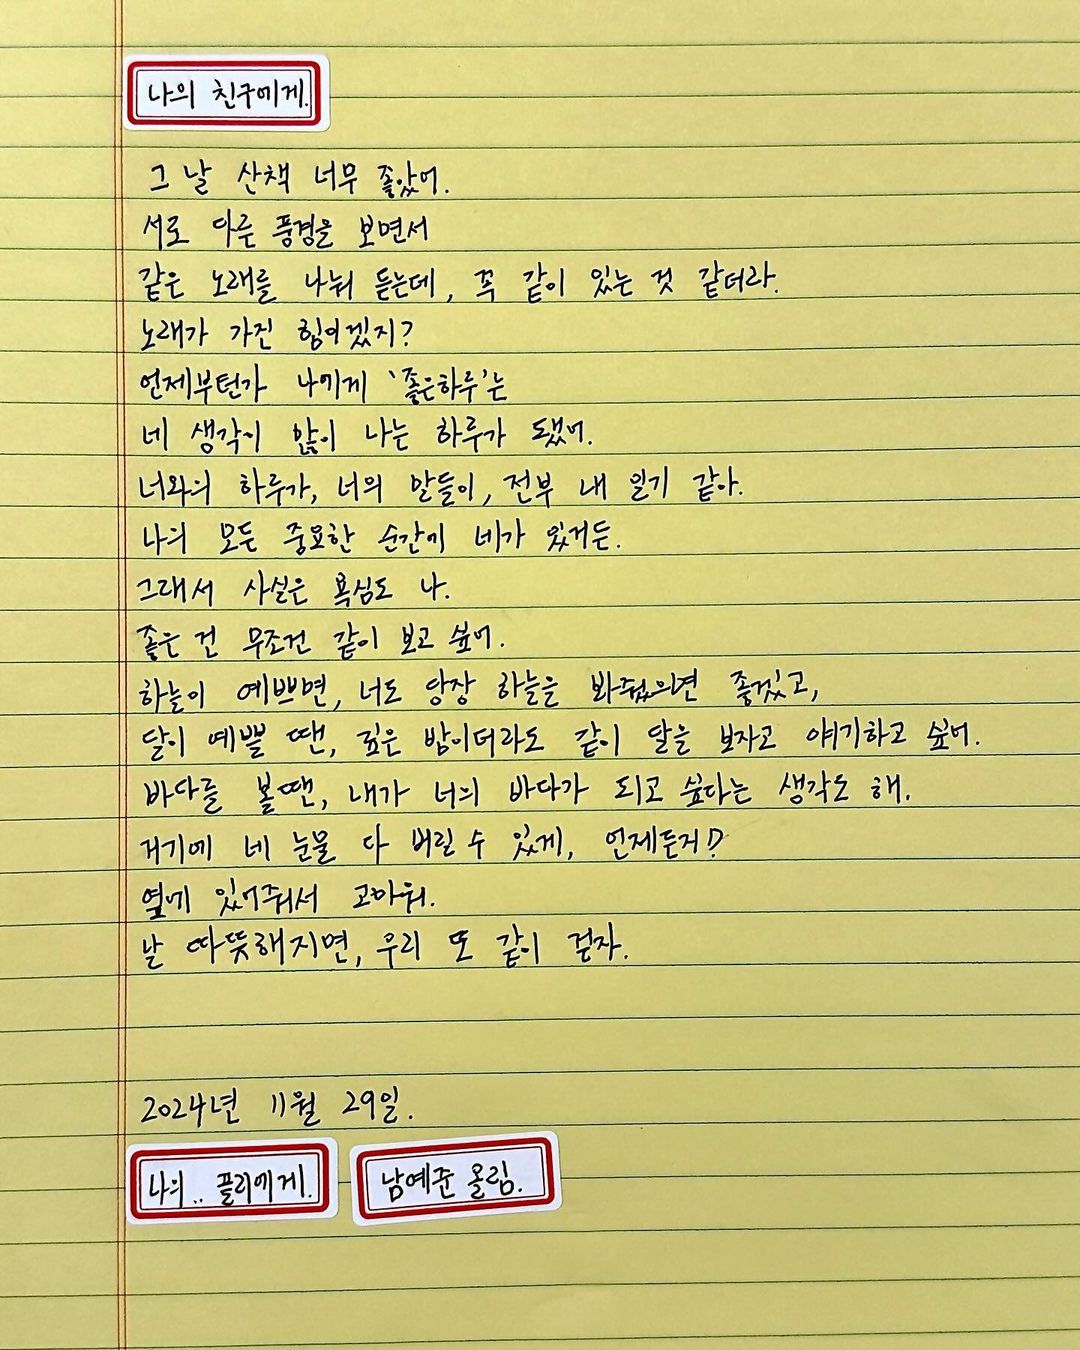 나의 친구에게.
그 날 산책 너무 좋았어.
서로 다른 풍경을 보면서
같은 노래를 나눠 듣는데, 꼭 같이 있는 것 같더라.
노래가 가진 힘이겠지?
언제부턴가 나에게 '좋은하루'는
네 생각이 많이 나는 하루가 됐어.
너와의 하루가, 너의 말들이, 전부 내 일기 같아.
나의 모든 중요한 순간에 네가 있거든.
그래서 사실은 욕심도 나.
좋은 건 무조건 같이 보고 싶어.
하늘이 예쁘면, 너도 당장 하늘을 봐줬으면 좋겠고,
달이 예쁠 땐, 깊은 밤이더라도 같이 달을 보자고 얘기하고 싶어.
바다를 볼땐, 내가 너의 바다가 되고 싶다는 생각도 해.
거기에 네 눈물 다 버릴 수 있게, 언제든지!
옆에 있어줘서 고마워.
날 따뜻해지면, 우리 또 같이 걷자.
2024년 11월 29일.
나의.. 플리에게. 남예준 올림.